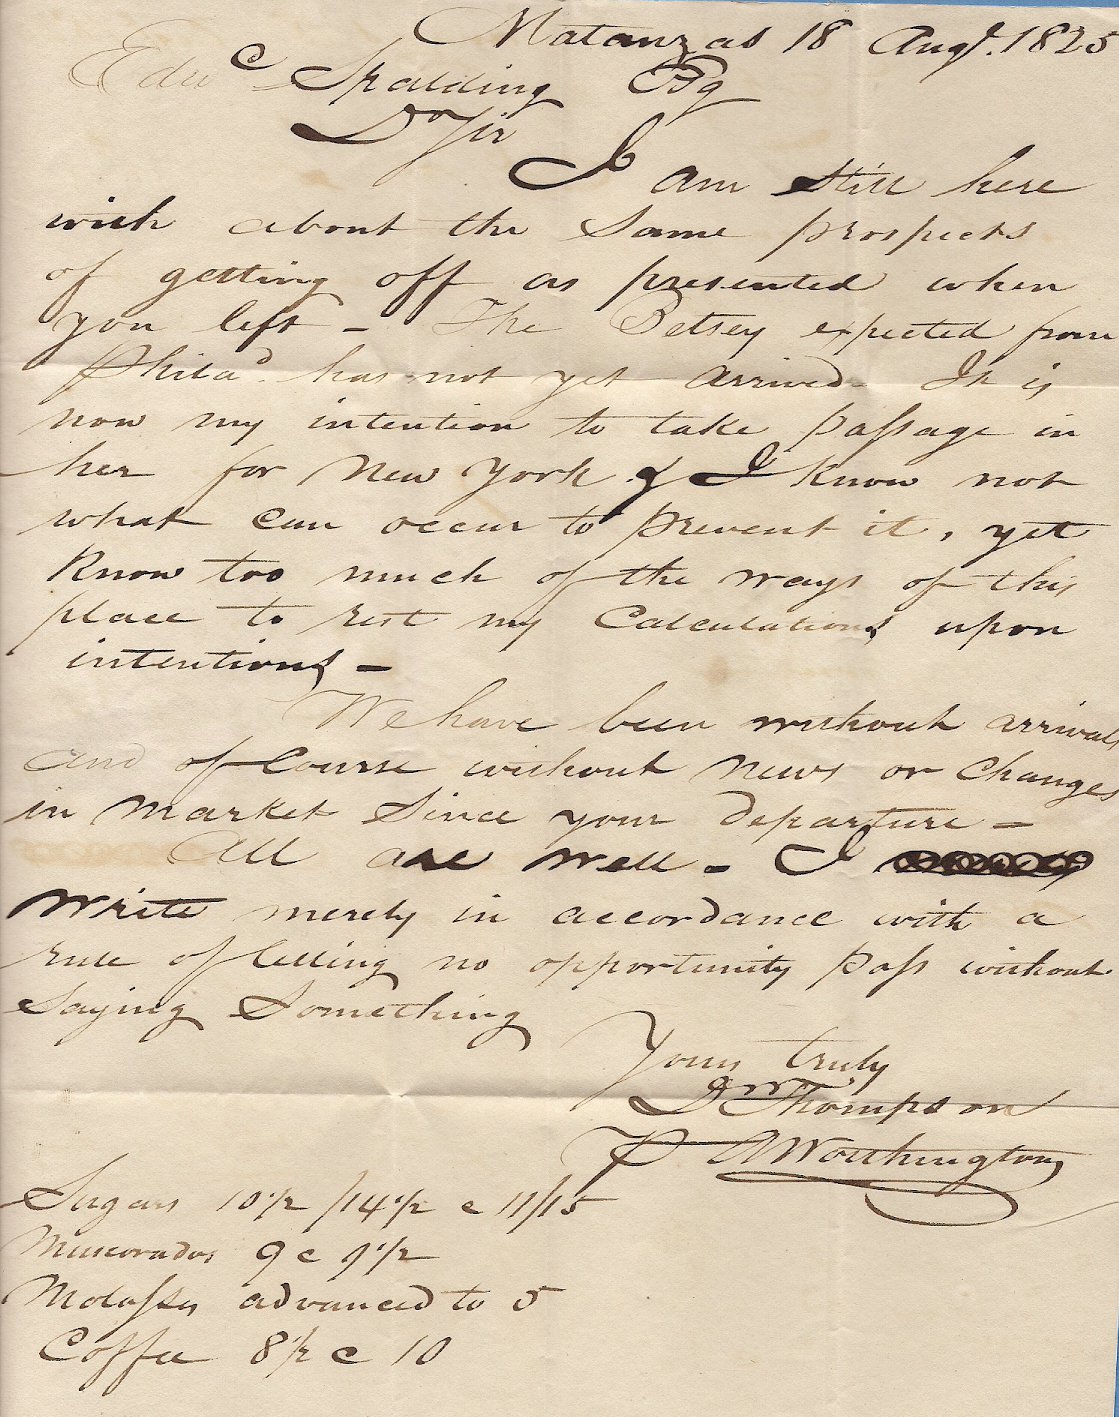 Matanzas 18 Augt. 1825
Edwd Spalding Esq
Dr Sir
I am still here
with about the same prospects
of getting off as presented when
you left – The Betsey expected from
Philad. has not yet arrived – It is
now my intention to take passage in
her for New York & I know not
what can occur to prevent it, yet
know too much of the ways of this
place to rest my Calculations upon
intentions –
We have been without arrivals
and of Course without news or Changes
in market Since your departure –
All are well – I
write merely in accordance with a
rule of letting no opportunity pass without
Saying Something
Yours truly
Thompson
P A Worthington
Sugars 10 1/2 / 14 1/2 c 11/15
Muscovados 9 c 9 1/2
Molasses advanced to 5
Coffee 8 1/2 c 10